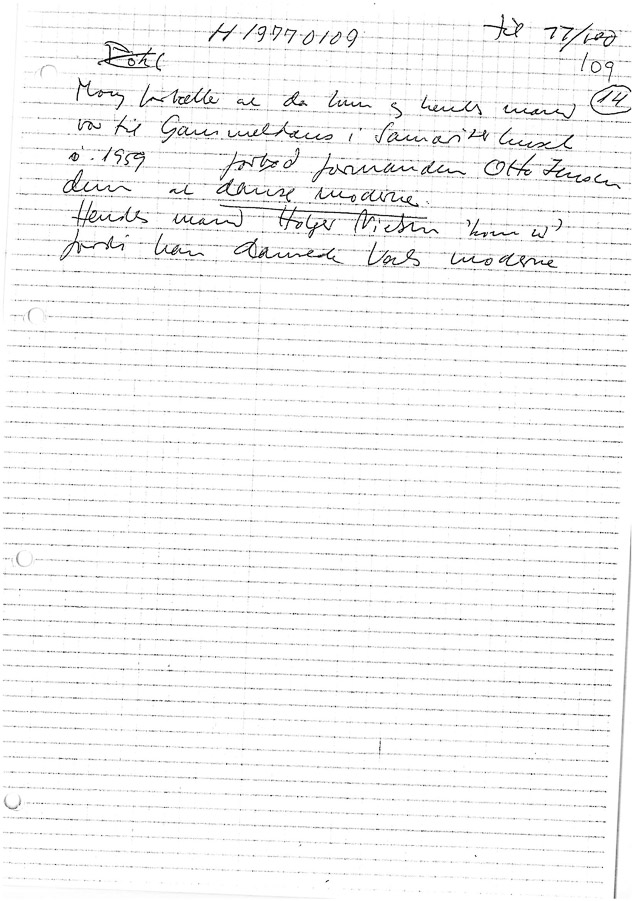 H 19770109
til 77/100
109
14
Mary fortæller at da hun og hendes mand
var til Gammeldans i Samariterhuset
i 1959 forbød formanden Otto Jensen
dem at danse moderne.
Hendes mand Holger Nielsen 'kom ud'
fordi han dansede Vals moderne